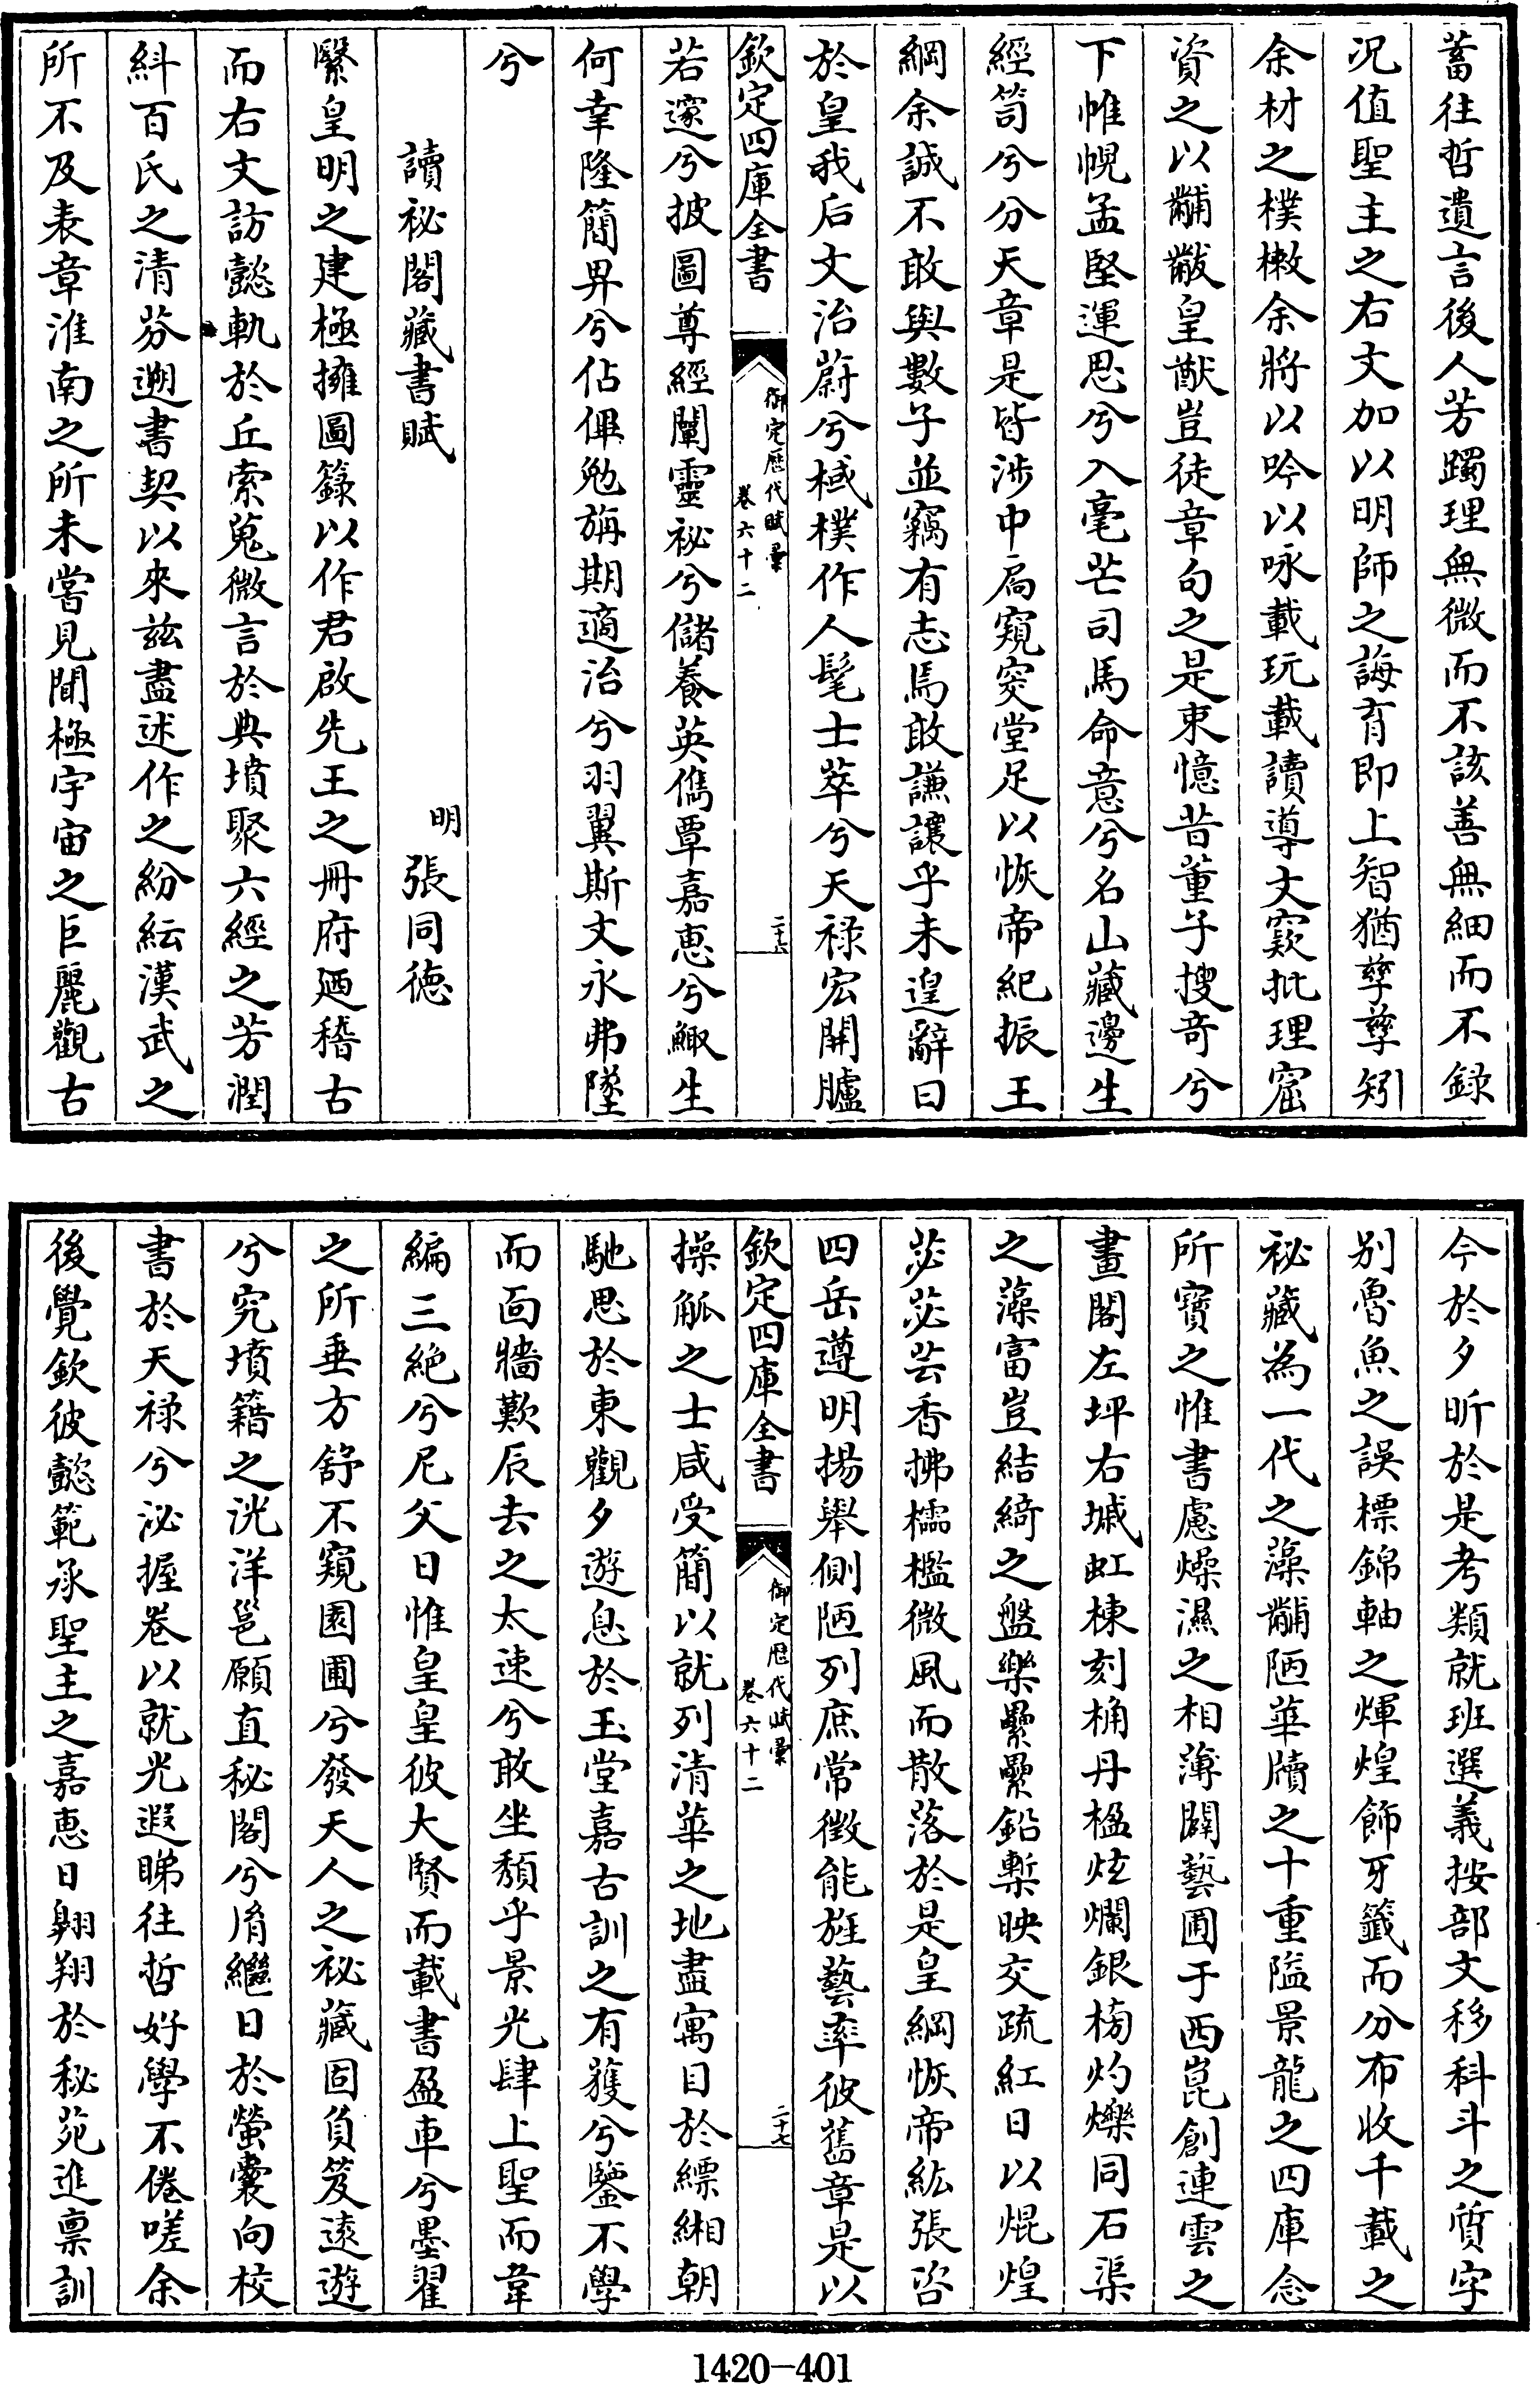 蓄往哲遺言後人芳躅理無微而不該善無細而不録
况值聖主之右文加以明師之誨育即上智猶孳孳矧
余材之樸樕余將以吟以咏載玩載讀導文窾批理窟
資之以黼黻皇猷豈徒章句之是束憶昔董子搜竒兮
下帷幌孟堅運思兮入毫芒司馬命意兮名山藏邊生
經笥兮分天章是皆涉中扃窺突堂足以恢帝紀振王
綱余誠不敢與數子並竊有志焉敢謙讓乎未遑辭曰
於皇我后文治蔚兮棫樸作人髦士萃兮天禄宏開臚
欽定四庫全書
御定歴代賦彙
卷六十二
二十六
若邃兮披圖尊經闡靈祕兮儲養英儁覃嘉惠兮鯫生
何幸隆簡畀兮佔俾勉旃期適治兮羽翼斯文永弗墜
兮
讀祕閣藏書賦
明張同德
繄皇明之建極擁圖籙以作君啟先王之冊府廼稽古
而右文訪懿軌於丘索蒐微言於典墳聚六經之芳潤
紏百氏之清芬遡書契以來兹盡述作之紛紜漢武之
所不及表章淮南之所未嘗見聞極宇宙之巨麗觀古
今於夕昕於是考類就班選義按部文移科斗之質字
别魯魚之誤標錦軸之煇煌飾牙籤而分布收千載之
祕藏為一代之藻黼陋華牘之十重隘景龍之四庫念
所寳之惟書慮燥濕之相薄闢藝圃于西崑創連雲之
畫閣左坪右墄虹棟刻桷丹楹炫爛銀牓灼爍同石渠
之藻富豈結綺之盤樂纍纍鉛槧映交疏紅日以焜煌
苾苾芸香拂櫺檻微風而散落於是皇綱恢帝紘張咨
四岳遵明揚舉側陋列庶常徴能旌藝率彼舊章是以
欽定四庫全書
御定歴代賦彙
卷六十二
二十七
操觚之士咸受簡以就列清華之地盡寓目於縹緗朝
馳思於東觀夕遊息於玉堂嘉古訓之有獲兮鑒不學
而面牆歎辰去之太速兮敢坐頽乎景光肆上聖而韋
編三絶兮尼父日惟皇皇彼大賢而載書盈車兮墨翟
之所垂方舒不窺園圃兮發天人之祕藏固負笈逺遊
兮究墳籍之洸洋邕願直秘閣兮脩繼日於螢囊向校
書於天禄兮泌握巻以就光遐睇往哲好學不倦嗟余
後覺欽彼懿範承聖主之嘉惠日翱翔於秘苑進禀訓
1420-401